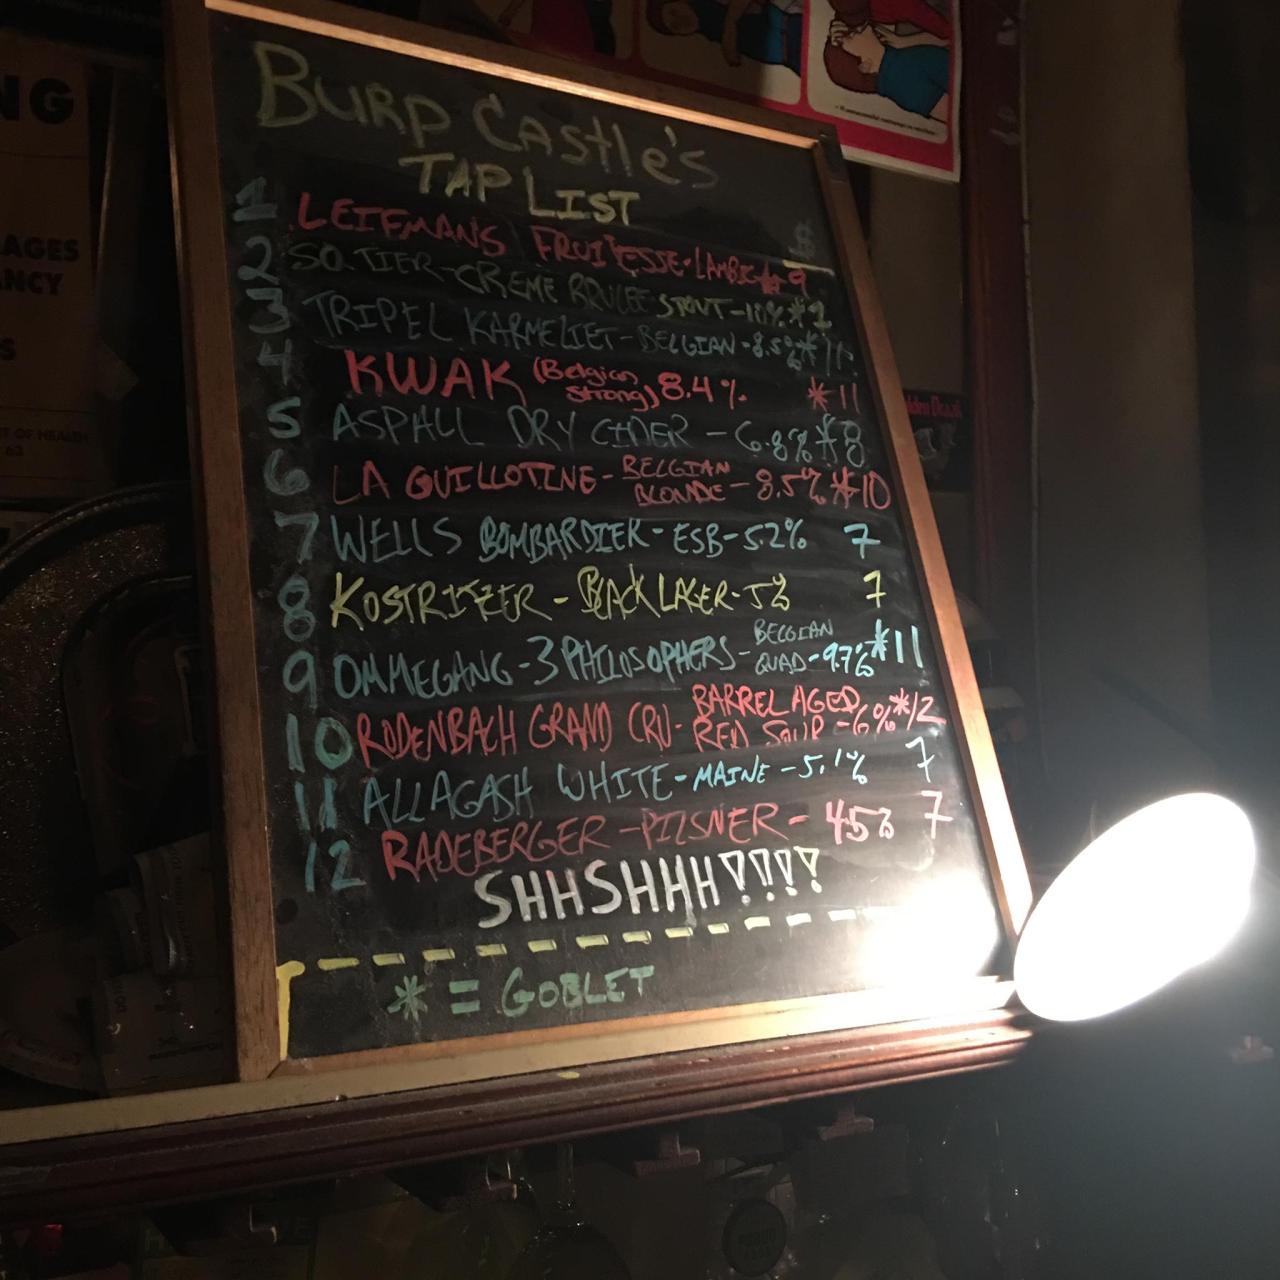 BURP CASTLE'S
TAP LIST
$
1 LEIFMANS FRUITESSE - LAMBIC * 9
2 SO TIER - CREME BRULEE STOUT - 10% *
3 TRIPEL KARMELIET - BELGIAN - 8.5% *
4 KWAK (Belgian Strong) 8.4% * 11
5 ASPALL DRY CIDER - 6.8% * 8
6 LA GUILLOTINE - BELGIAN BLONDE - 8.5% * 10
7 WELLS BOMBARDIER - ESB - 5.2% 7
8 KOSTRITZER - BLACK LAGER - 5% 7
9 OMMEGANG - 3 PHILOSOPHERS - BELGIAN QUAD - 9.7% * 11
10 RODENBACH GRAND CRU - BARREL AGED RED SOUR - 6% * 12
11 ALLAGASH WHITE - MAINE - 5.1% 7
12 RADEBERGER - PILSNER - 4.5% 7
SHHSHHH!!!!
* = GOBLET
NG
AGES
NCY
S
T OF HEALTH
63